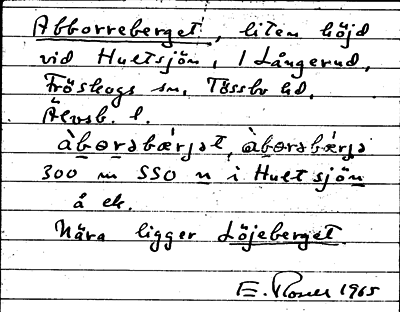 Abborreberget, liten höjd
vid Hultsjön, 1 Långerud,
Fröskogs sn, Tössbo hd,
Älvsb. l.
àb̲ɵrəbǽrjət, àb̲ɵrəbǽrjə
300 m SSO n i Hultsjön
å ek.
Nära ligger Löjeberget
E. Rosell 1965